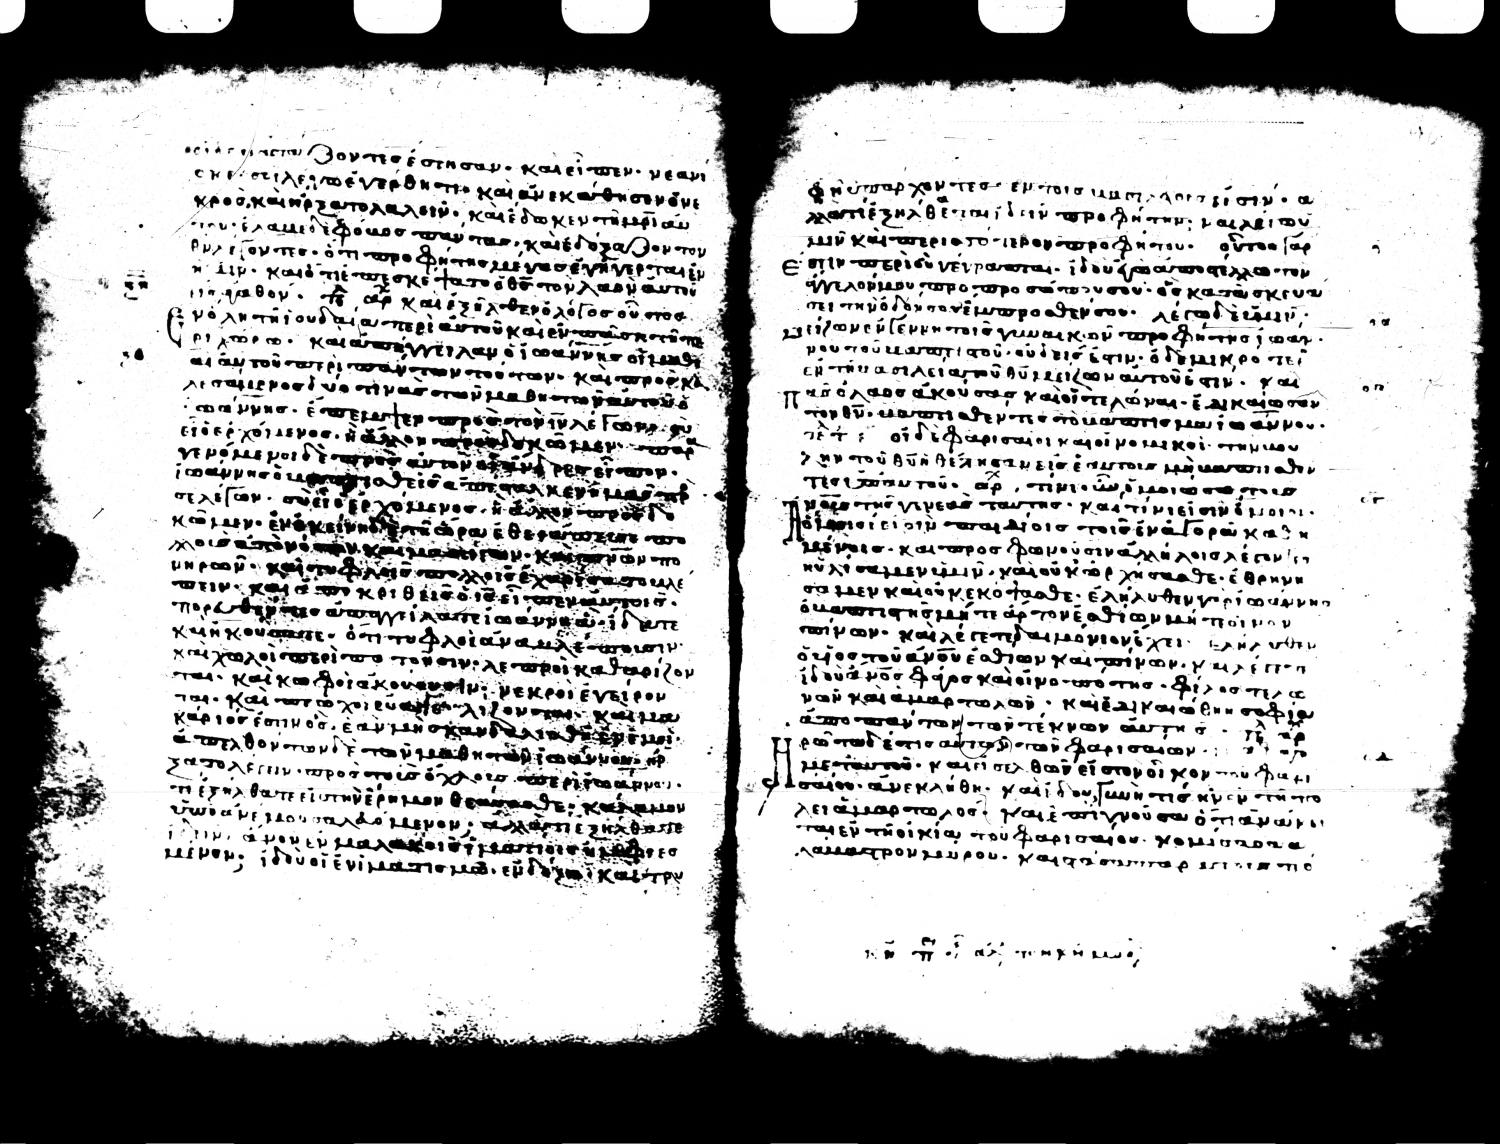 βαστάζοντες ἔστησαν· καὶ εἶπεν· νεανί
σκε· σοὶ λέγω ἐγέρθητι· καὶ ἀνεκάθησεν ὁ νε
κρός, καὶ ἤρξατο λαλεῖν· καὶ ἔδωκεν τῇ μρὶ αὐ
τοῦ· ἔλαβε δὲ φόβος πάντας, καὶ ἐδόξαζον τὸν
θν λέγοντες· ὅτι προφήτης μέγας ἐγήγερται ἐν
ἡμῖν· καὶ ὅτι ἐπεσκέψατο ὁ θς τὸν λαὸν αὐτοῦ
εἰς ἀγαθόν· καὶ ἐξῆλθεν ὁ λόγος οὗτος
ἐν ὅλῃ τῇ ἰουδαίᾳ περὶ αὐτοῦ καὶ ἐν πάσῃ τῇ πε
ριχώρῳ· καὶ ἀπήγγειλαν ὁ ἰωάννης οἱ μαθη
αὶ αὐτοῦ περὶ πάντων τούτων· καὶ προσκα
λεσάμενος δύο τινὰς τῶν μαθητῶν αὐτοῦ ὁ
ἰωάννης· ἔπεμψεν πρὸς τὸν ιν λέγων· σὺ
εἶ ὁ ἐρχόμενος· ἢ ἄλλον προσδοκῶμεν· παρα
γενόμενοι δὲ πρὸς αὐτὸν οἱ ἄνδρες εἶπον·
ἰωάννης ὁ βαπτισθεὶς ἀπέσταλκεν ἡμᾶς πρ
σε λέγων· σὺ εἶ ὁ ἐρχόμενος, ἢ ἄλλον προσδο
κῶμεν· ἐν ἐκείνῃ δὲ τῇ ὥρᾳ ἐθεράπευσε πο
λλοὺς ἀπὸ νόσων καὶ μαστίγων· καὶ πνων πο
νηρῶν· καὶ τυφλοῖς πολλοῖς ἐχαρίσατο βλέ
πειν· καὶ ἀποκριθεὶς ὁ ις εἶπεν αὐτοῖς·
πορευθέντες ἀπαγγείλατε ἰωάννῃ ἃ εἴδετε
καὶ ἠκούσατε· ὅτι τυφλοὶ ἀναβλέπουσιν·
καὶ χωλοὶ περιπατοῦσιν· λεπροὶ καθαρίζον
ται· καὶ κωφοὶ ἀκούουσιν· νεκροὶ ἐγείρον
ται· καὶ πτωχοὶ εὐαγγελίζονται· καὶ μα
κάριός ἐστιν ὃς ἐὰν μὴ σκανδαλισθῇ ἐν ἐμοί·
ἀπελθόντων δὲ τῶν μαθητῶν ἰωάννου· ἤρ
ξατο λέγειν πρὸς τοὺς ὄχλους περὶ ἰωάννου·
τί ἐξήλθατε εἰς τὴν ἔρημον θεάσασθε· κάλαμον
ὑπὸ ἀνέμου σαλευόμενον; ἀλλὰ τί ἐξήλθατε
ἰδεῖν· ἄνον ἐν μαλακοῖς ἱματίοις ἠμφιεσ
μένον; ἰδοὺ οἱ ἐν ἱματισμῷ ἐνδόξῳ καὶ τρυ
φῇ ὑπάρχοντες ἐν τοῖς βασιλείοις εἰσίν· ἀ
λλὰ τί ἐξήλθατε ἰδεῖν προφήτην; ναὶ λέγω ὑ
μῖν καὶ περισσότερον προφήτου· οὗτος γάρ
ἐστιν περὶ οὗ γέγραπται· ἰδοὺ ἐγὼ ἀποστέλλω τὸν
ἄγγελόν μου πρὸ προσώπου σου· ὃς κατασκευά
σει τὴν ὁδόν σου ἔμπροσθέν σου· λέγω δὲ ὑμῖν·
μείζων ἐν γεννητοῖς γυναικῶν προφήτης ἰωάν
νου τοῦ βαπτιστοῦ· οὐδείς ἐστιν· ὁ δὲ μικρότε
ἐν τῇ βασιλείᾳ τοῦ θυ μείζων αὐτοῦ ἐστίν· καὶ
πᾶς ὁ λαὸς ἀκούσας καὶ οἱ τελῶναι· ἐδικαίωσαν
τὸν θν· βαπτισθέντες τὸ βάπτισμα ἰωάννου·
οἱ δὲ φαρισαῖοι καὶ οἱ νομικοὶ· τὴν βου
λὴν τοῦ θυ ἠθέτησαν εἰς ἑαυτοὺς μὴ βαπτισθέν
τες ὑπ' αὐτοῦ· τίνι οὖν ὁμοιώσω τοὺς
ανους τῆς γενεᾶς ταύτης· καὶ τίνι εἰσὶν ὅμοιοι·
ὅμοιοί εἰσιν παιδίοις τοῖς ἐν ἀγορᾷ καθη
μένοις· καὶ προσφωνοῦσιν ἀλλήλοις λέγον
ηὐλήσαμεν ὑμῖν, καὶ οὐκ ὠρχήσασθε· ἐθρηνή
σαμεν καὶ οὐκ ἐκόψασθε· ἐλήλυθεν γὰρ ἰωάννης
ὁ βαπτιστὴς μήτε ἄρτον ἐσθίων μὴ ποῖνον
πίνων· καὶ λέγετε δαιμόνιον ἔχει· ἐλήλυθεν
ὁ υἱὸς τοῦ ανου ἐσθίων καὶ πίνων, καὶ λέγετε
ἰδοὺ ανος φάγος καὶ οἰνοπότης· φίλος τελω
νῶν καὶ ἁμαρτωλῶν· καὶ ἐδικαιώθη ἡ σοφία
ἀπὸ πάντων τῶν τέκνων αὐτῆς·
ἠρώτα δέ τις αὐτὸν τῶν φαρισαίων
μετ' αὐτοῦ· καὶ εἰσελθὼν εἰς τὸν οἶκον τοῦ φαρι
σαίου· ἀνεκλήθη· καὶ ἰδοὺ γυνή τις ἦν ἐν τῇ πό
λει ἁμαρτωλός· καὶ ἐπιγνοῦσα ὅτι ἀνάκει
ται ἐν τῇ οἰκίᾳ τοῦ φαρισαίου· κομίσασα ἀ
λάβαστρον μύρου· καὶ στᾶσα παρὰ